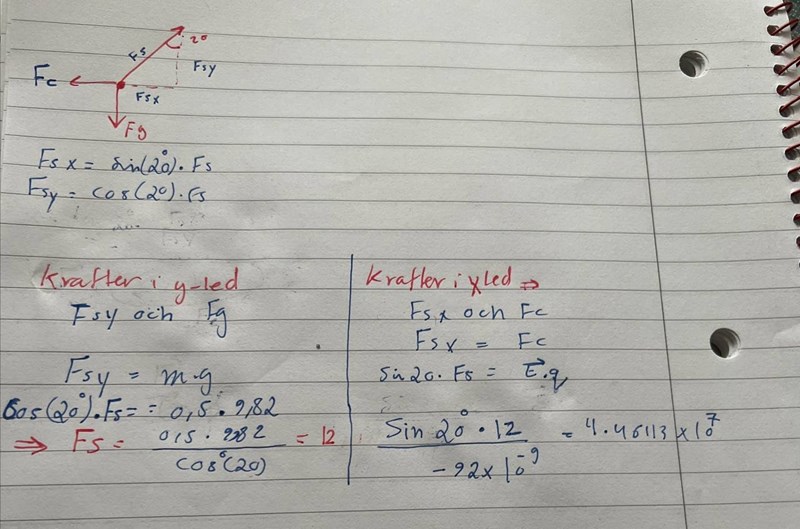 Fs
20
Fc
Fsy
Fsx
Fg
Fsx = sin(20°)·Fs
Fsy = cos(20)·Fs
Krafter i y-led
Fsy och Fg
Fsy = m·g
Cos(20°)·Fs = = 0,5 · 9,82
⇒ Fs = 0,5 · 982 / cos°(20) = 12
Krafter i x led ⇒
Fsx och Fc
Fsx = Fc
sin 20 · Fs = E·q
Sin 20° · 12 / -92x10^-9 = 4.46113 x 10^7